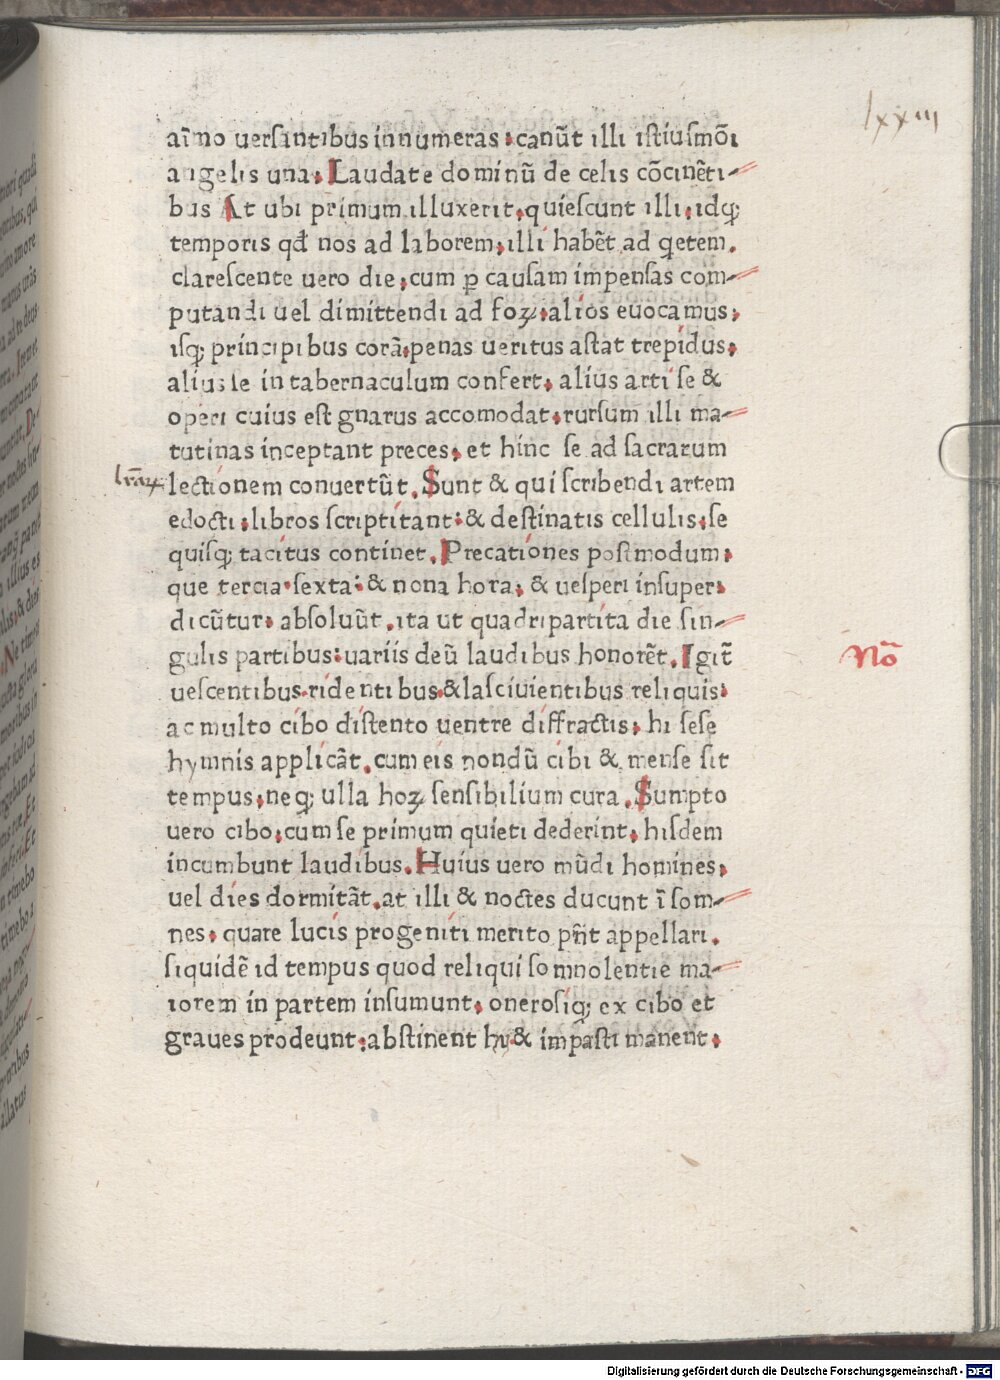 lxxiii
aīmo uersantibus innumeras: canūt illi istiusmōi
angelis una: Laudate dominū de celis cōcinēti-
bus At ubi primum illuxerit, quiescunt illi: idqꝫ
temporis qđ nos ad laborem, illi habēt ad q̄etem.
clarescente uero die, cum ꝑ causam impensas com-
putandi uel dimittendi ad foꝝ, alios euocamus,
isqꝫ principibus corā, penas ueritus astat trepidus,
alius se in tabernaculum confert, alius arti se &
operi cuius est gnarus accomodat, rursum illi ma-
tutinas inceptant preces, et hinc se ad sacrarum
lr̄aꝝ lectionem conuertūt. Sunt & qui scribendi artem
edocti, libros scriptitant: & destinatis cellulis, se
quisqꝫ tacitus continet. Precationes postmodum,
que tercia, sexta: & nona hora, & uesperi insuper,
dicūtur, absoluūt, ita ut quadripartita die sin-
gulis partibus: uariis deū laudibus honorēt. Igit̄
Nō
uescentibus, ridentibus, & lasciuientibus reliquis,
ac multo cibo distento uentre diffractis, hi sese
hymnis applicāt, cum eis nondū cibi & mense sit
tempus, neqꝫ ulla hoꝝ sensibilium cura. Sumpto
uero cibo, cum se primum quieti dederint, hisdem
incumbunt laudibus. Huius uero mūdi homines,
uel dies dormitāt, at illi & noctes ducunt ī som-
nes, quare lucis progeniti merito pn̄t appellari.
siquidē id tempus quod reliqui somnolentie ma-
iorem in partem insumunt, onerosiqꝫ ex cibo et
graues prodeunt: abstinent hy & impasti manent,
Digitalisierung gefördert durch die Deutsche Forschungsgemeinschaft - DFG